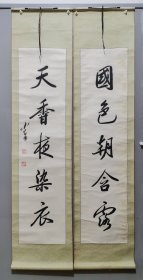 國色朝含露
天香夜染衣